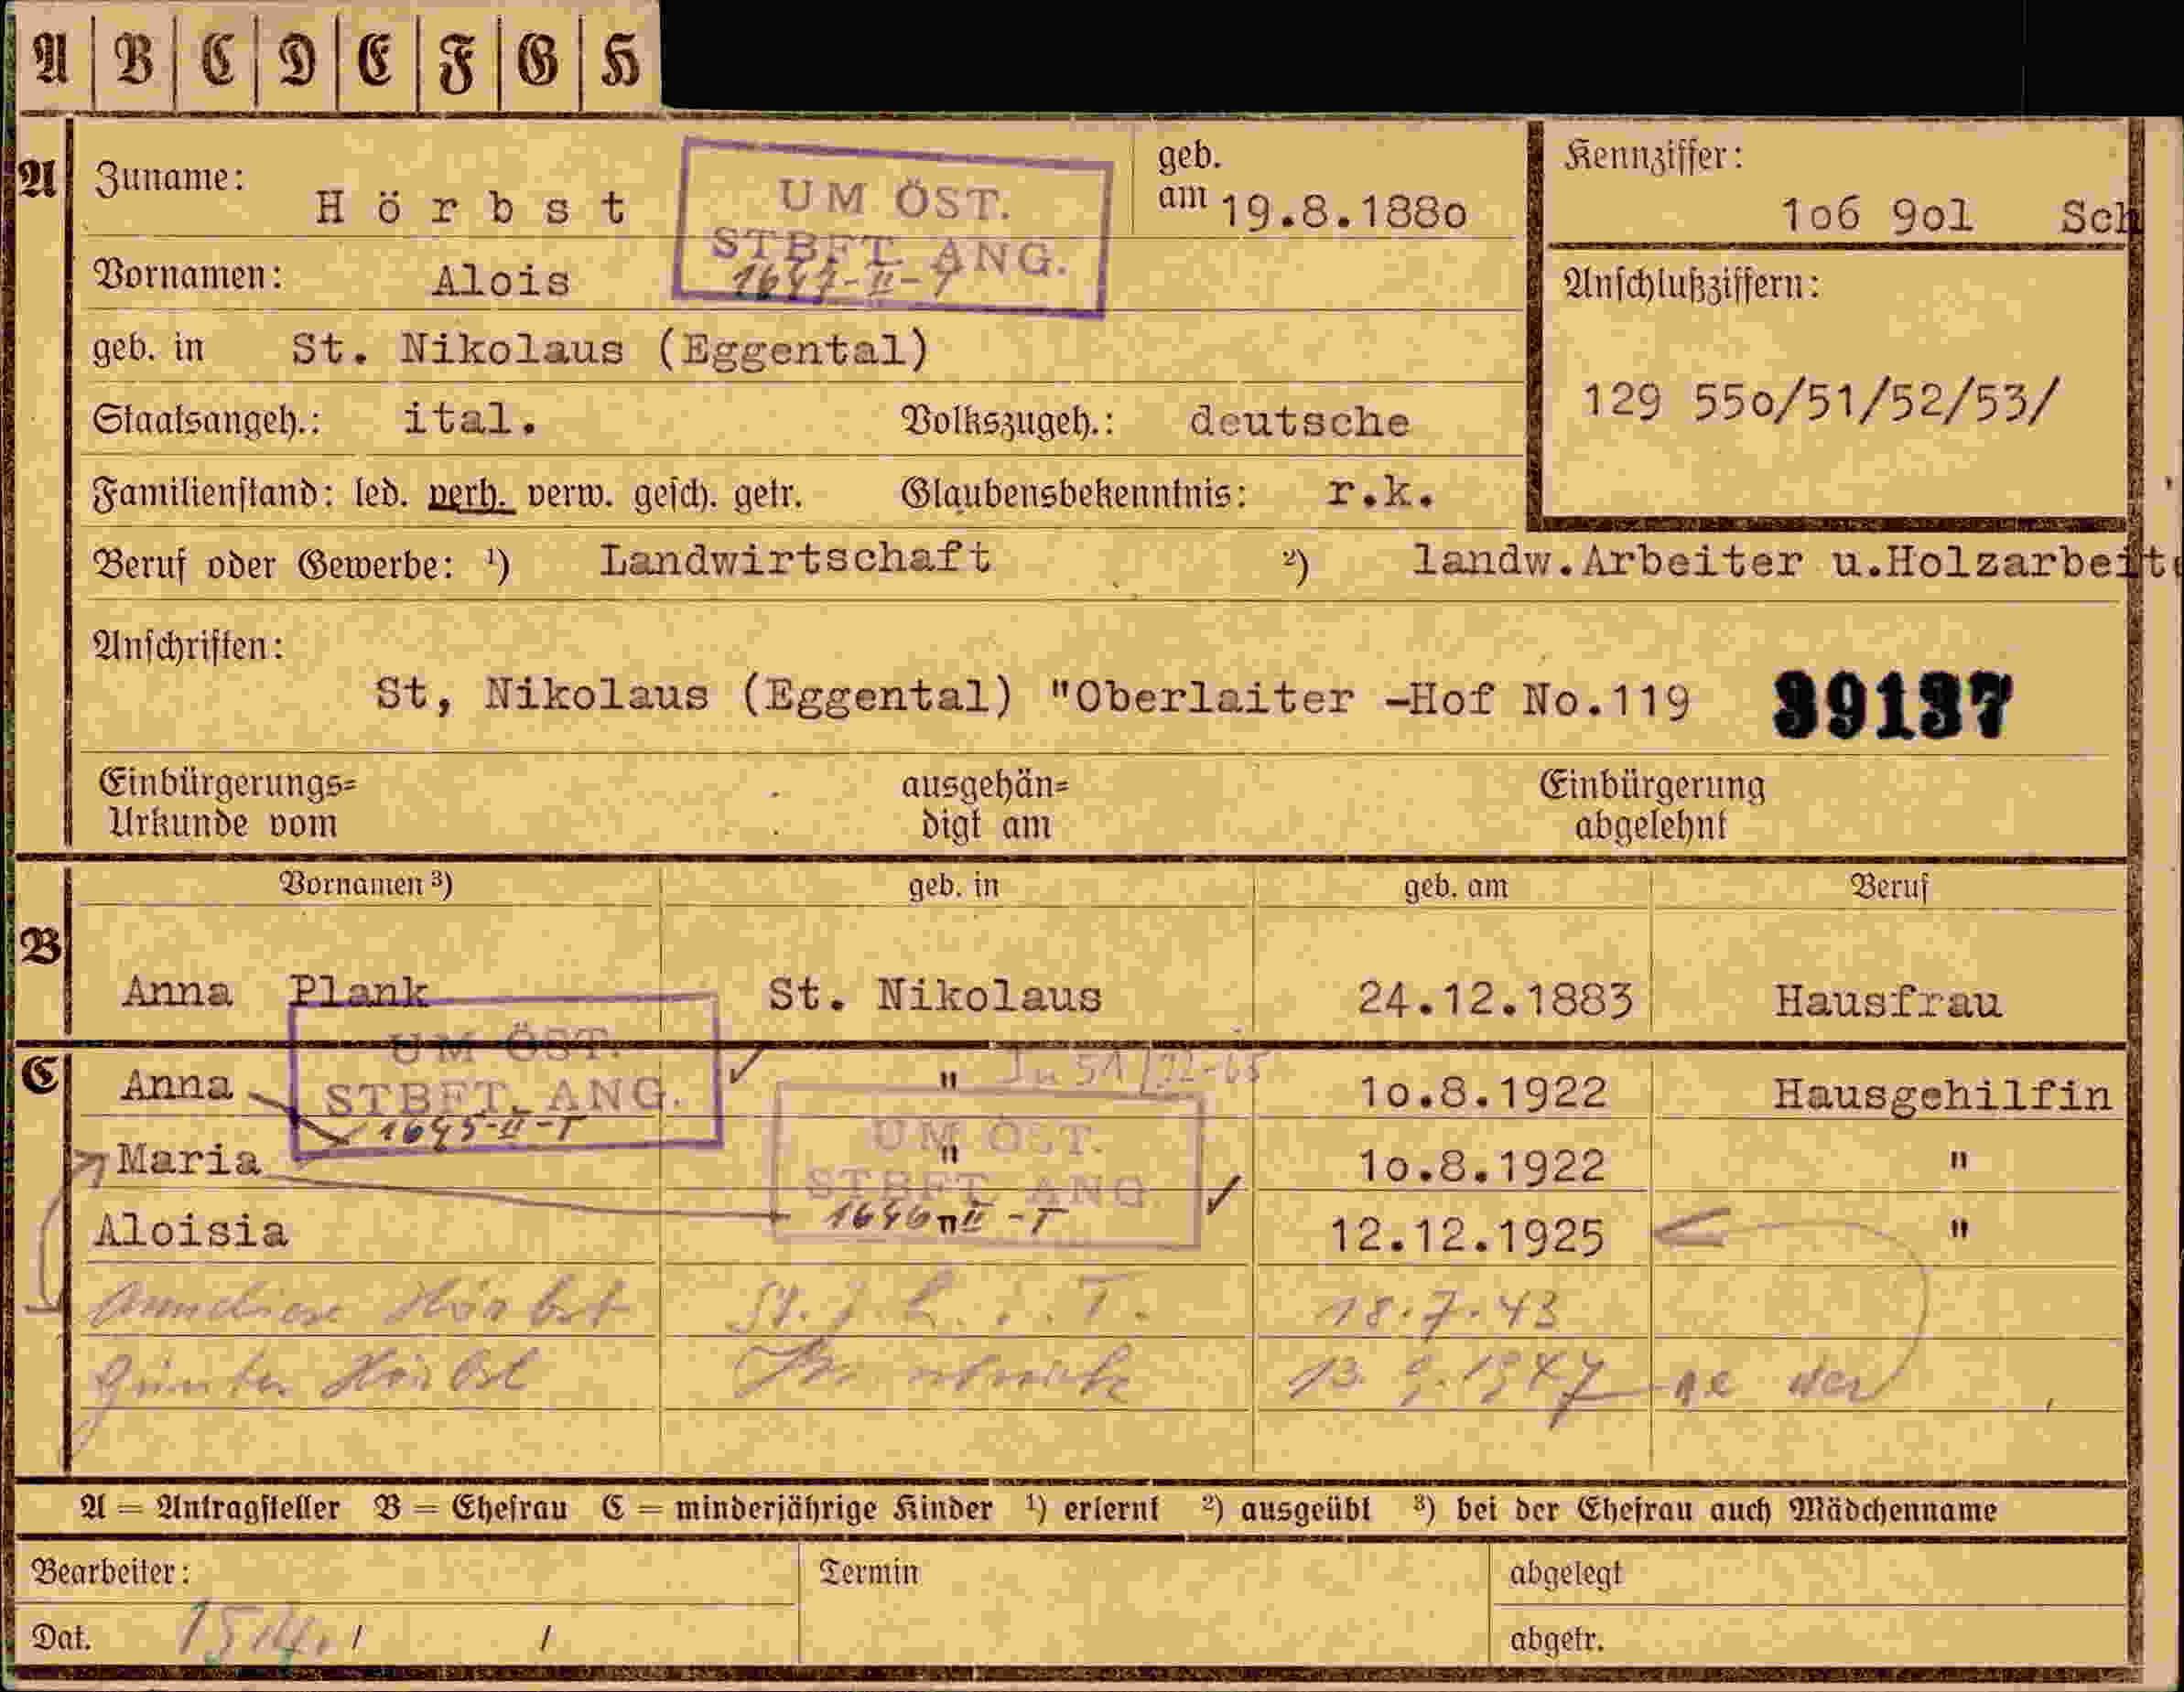 A B C D E F G H
A Zuname: Hörbst
UM ÖST.
STBFT. ANG.
geb.
am 19.8.188o
Kennziffer:
1o6 9o1 Sch
Vornamen: Alois
Anschlußziffern:
129 55o/51/52/53/
geb. in St. Nikolaus (Eggental)
Staatsangeh.: ital. Volkszugeh.: deutsche
Familienstand: led. verh. verw. gesch. getr. Glaubensbekenntnis: r.k.
Beruf oder Gewerbe: ¹) Landwirtschaft ²) landw.Arbeiter u.Holzarbeit
Anschriften:
St, Nikolaus (Eggental) "Oberlaiter -Hof No.119 39137
Einbürgerungs=
Urkunde vom
ausgehän=
digt am
Einbürgerung
abgelehnt
Vornamen ³) geb. in geb. am Beruf
B
Anna Plank St. Nikolaus 24.12.1883 Hausfrau
UM ÖST.
STBFT. ANG.
1645-II-T
C Anna " 1o.8.1922 Hausgehilfin
UM ÖST.
STBFT. ANG.
1646 II-T
Maria " 1o.8.1922 "
Aloisia " 12.12.1925 "
Hörbst 18.7.43
Günter Hörbst 13. 9. 1947
A = Antragsteller B = Ehefrau C = minderjährige Kinder ¹) erlernt ²) ausgeübt ³) bei der Ehefrau auch Mädchenname
Bearbeiter: Termin abgelegt
Dat. / / abgetr.